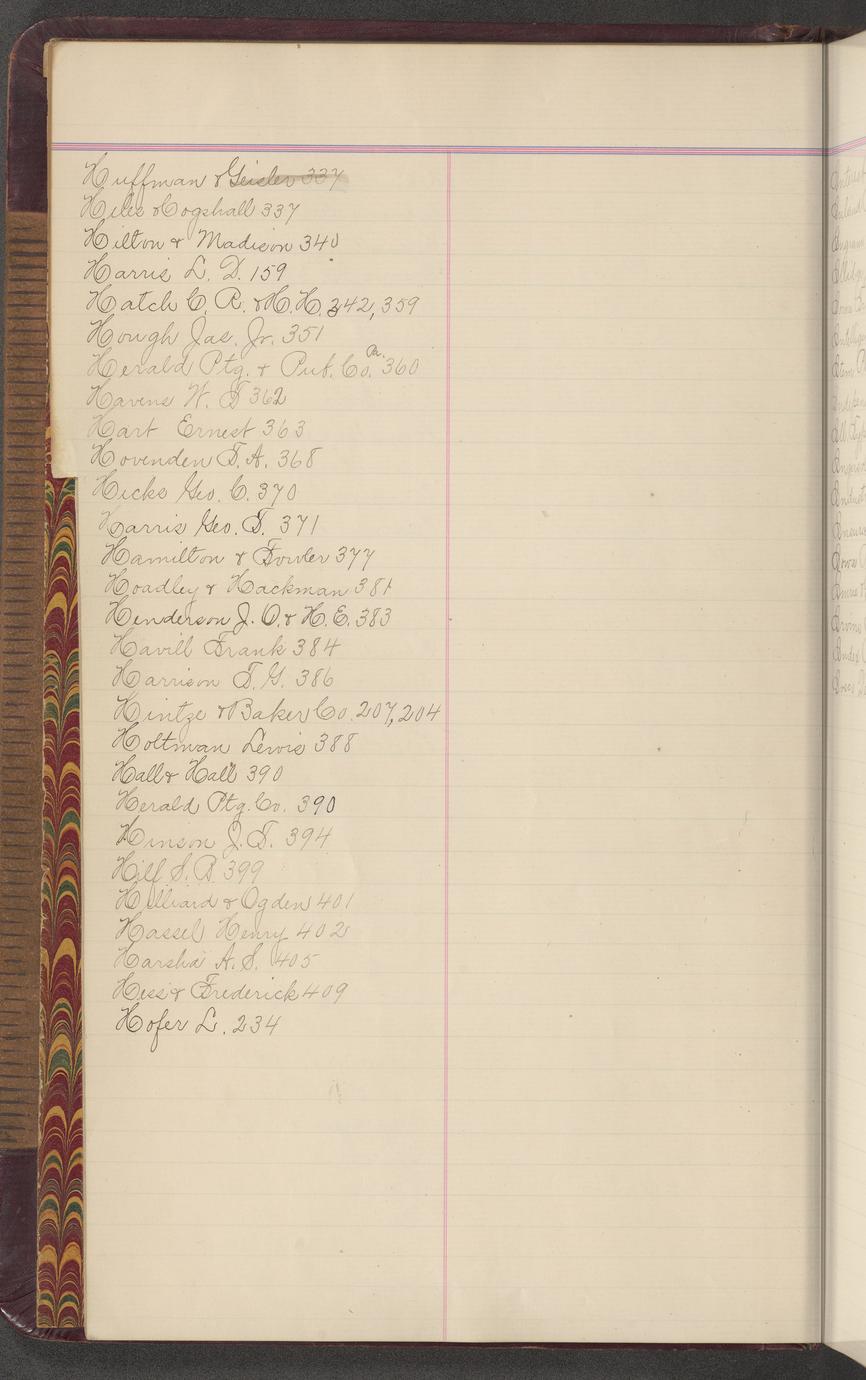 Huffman & Geisler 337
Hiles & Cogshall 337
Hilton & Madison 340
Harris L. D. 159
Hatch C. R. & H. H. 342, 359
Hough Jas. Jr. 351
Herald Ptg. & Pub. Co. Pa. 360
Havens W. T 362
Hart Ernest 363
Hovenden T. A. 368
Hicks Geo. C. 370
Harris Geo. T. 371
Hamilton & Fowler 377
Hoadley & Hackman 381
Henderson J. O. & H. E. 383
Havill Frank 384
Harrison T. G. 386
Hintze & Baker Co. 207, 204
Holtman Lewis 388
Hall & Hall 390
Herald Ptg. Co. 390
Hinson J. T. 394
Hill S. B 399
Hilliard & Ogden 401
Hassel Henry 402
Harsha A. S. 405
Hess & Frederick 409
Hofer L. 234